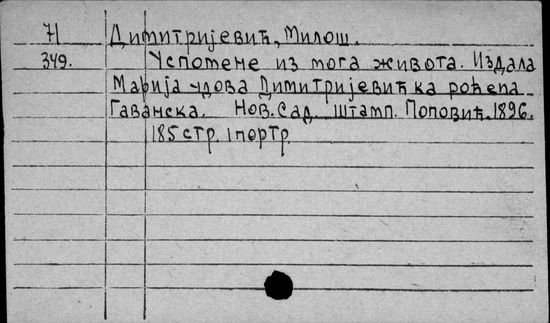 71 Димитријевић, Милош.
349. Успомене из мога живота. Издала
Марија удова Димитријевићка рођена
Гаванска. Нов. Сад. штамп. Поповић. 1896.
185 стр. 1 портр.